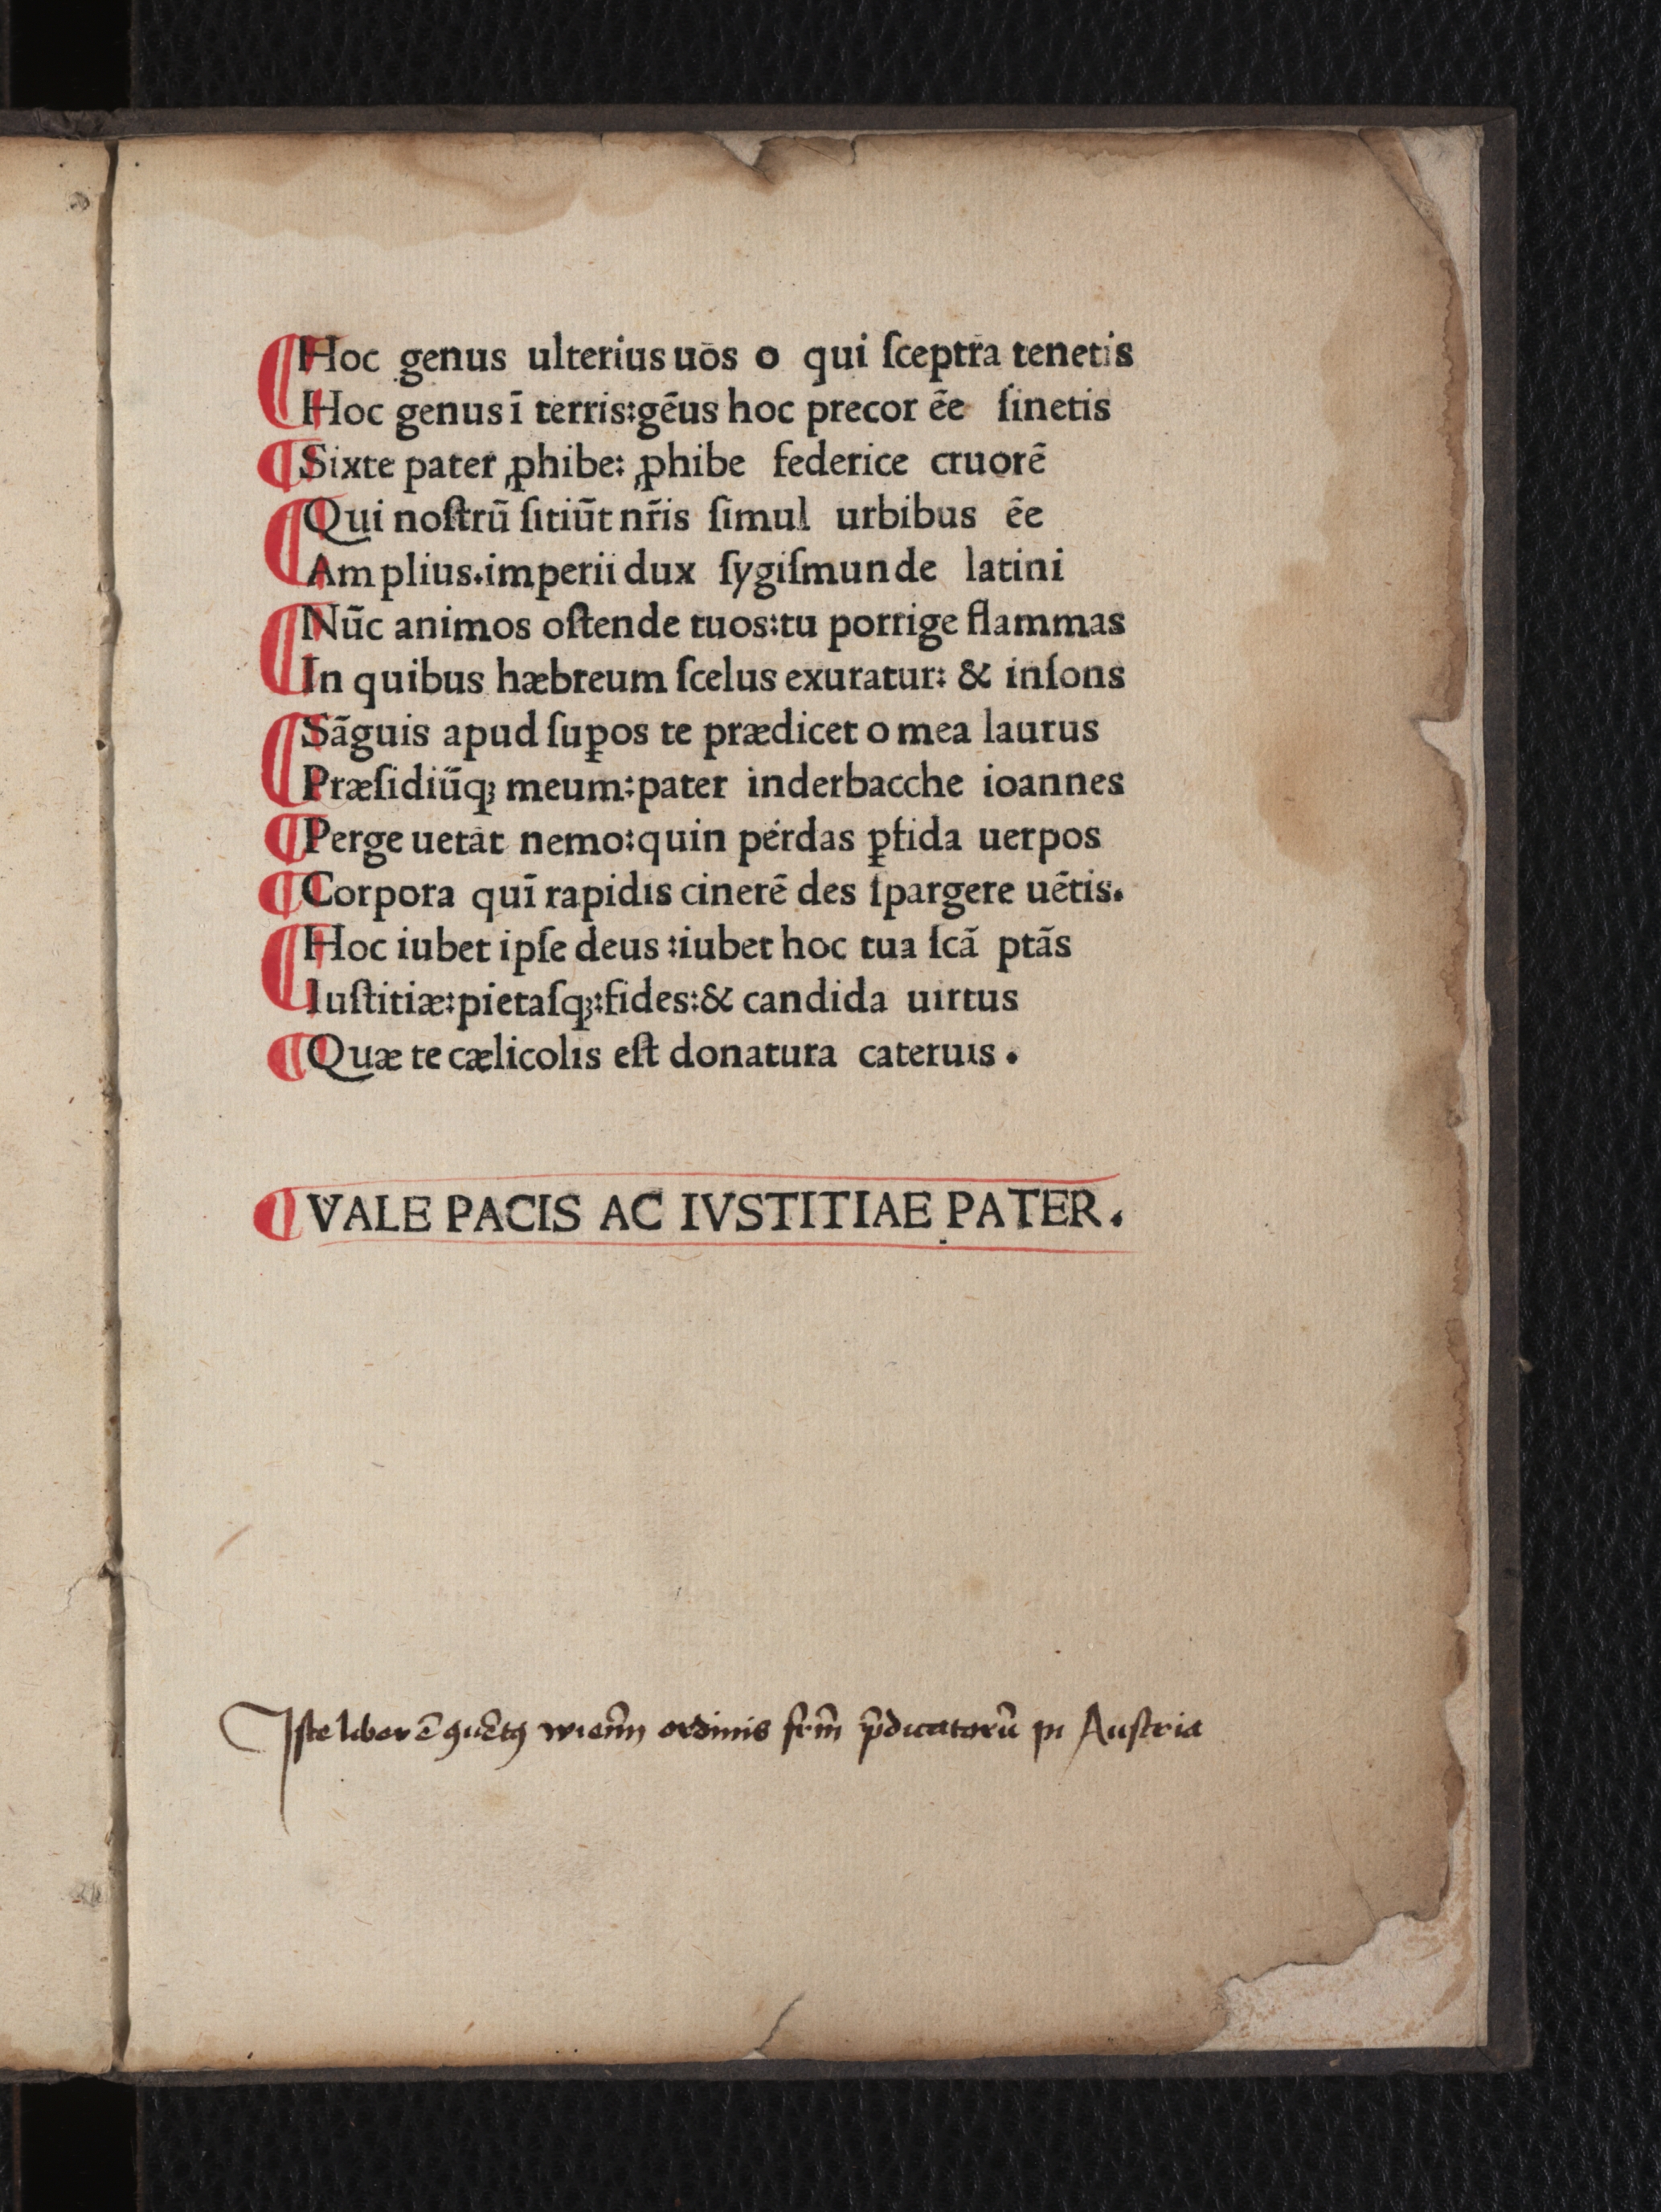 ¶Hoc genus ulterius uos o qui ſceptra tenetis
Hoc genus ī terris:gēus hoc precor ēe ſinetis
¶Sixte pater ꝓhibe: ꝓhibe federice cruorē
¶Qui noſtrū ſitiūt nr̄is ſimul urbibus ēe
Amplius.imperii dux ſygiſmunde latini
¶Nūc animos oſtende tuos:tu porrige flammas
In quibus hæbreum ſcelus exuratur: & inſons
¶Sāguis apud ſuꝑos te prædicet o mea laurus
Præſidiūqꝫ meum:pater inderbacche ioannes
¶Perge uetat nemo:quin perdas ꝑfida uerpos
¶Corpora quī rapidis cinerē des ſpargere uētis.
¶Hoc iubet ipſe deus :iubet hoc tua ſcā ptās
Iuſtitiæ:pietaſqꝫ:fides:& candida uirtus
¶Quæ te cælicolis eſt donatura cateruis .
¶VALE PACIS AC IVSTITIAE PATER.
Iſte liber ē ꝯuētꝯ wieñn ordinis fr̄m p̄dicatorū in Auſtria